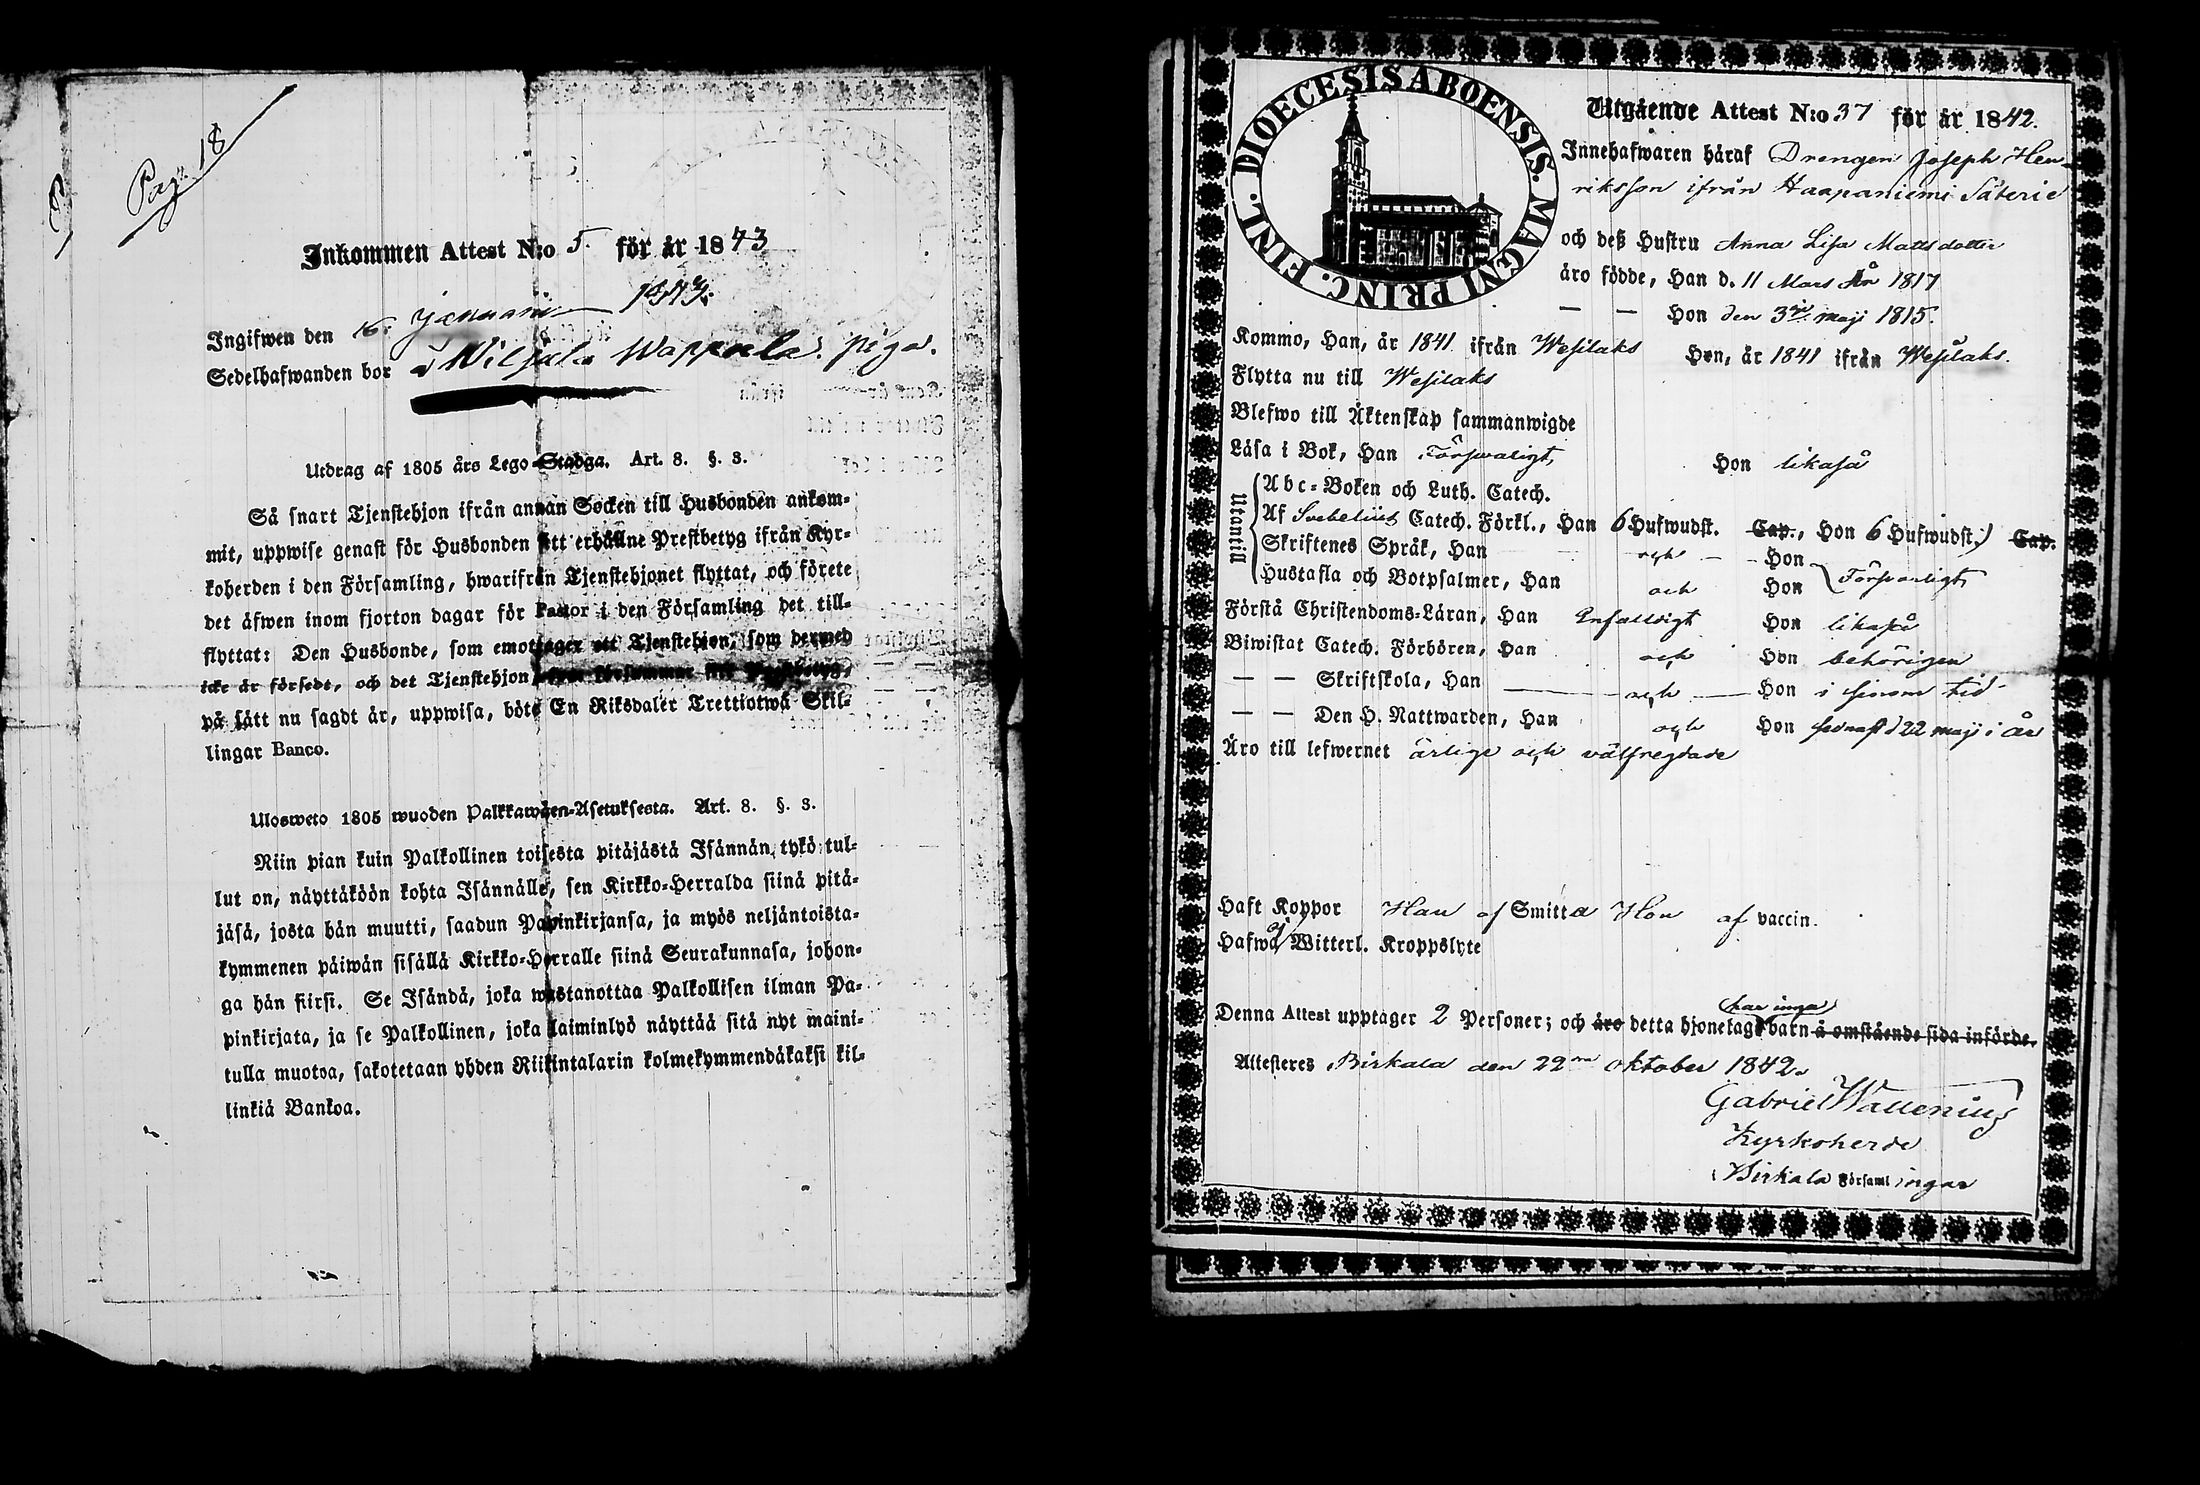 Pag. 18
Inkommen Attest N:o 5. för år 1843
Ingifwen den 16. januari 1843.
Sedelhafwanden bor i Wiljala Wappula. piga.
Utdrag af 1805 års Lego-Stadga. Art. 8. §. 3.
Så snart Tjenstehjon ifrån annan Socken till Husbonden ankom-
mit, uppwise genast för Husbonden sitt erhållne Prestbetyg ifrån Kyr-
koherden i den Församling, hwarifrån Tjenstehjonet flyttat, och förete
det äfwen inom fjorton dagar för Pastor i den Församling det till-
flyttat: Den Husbonde, som emottager ett Tjenstehjon, som dermed
icke är försedt, och det Tjenstehjon, som försummar sitt Prestbetyg,
på sätt nu sagdt är, uppwisa, böte En Riksdaler Trettiotwå Skil-
lingar Banco.
Ulosweto 1805 wuoden Palkkawäen-Asetuksesta. Art. 8. §. 3.
Niin pian kuin Palkollinen toisesta pitäjästä Isännän tykö tul-
lut on, näyttäköön kohta Isännälle, sen Kirkko-Herralda siinä pitä-
jäsä, josta hän muutti, saadun Papinkirjansa, ja myös neljäntoista-
kymmenen päiwän sisällä Kirkko-Herralle siinä Seurakunnasa, johon-
ga hän siirsi. Se Isändä, joka wastanottaa Palkollisen ilman Pa-
pinkirjata, ja se Palkollinen, joka laiminlyö näyttää sitä nyt maini-
tulla muotoa, sakotetaan yhden Riikintalarin kolmekymmendäkaksi kil-
linkiä Bankoa.
DIOECESIS ABOENSIS. MAGNI PRINC. FINL.
Utgående Attest N:o 37 för år 1842.
Innehafwaren häraf Drengen Joseph Hen-
riksson ifrån Haapaniemi Säterie
och deß Hustru Anna Lisa Mattsdotter
äro födde, Han d. 11 Mars År 1817
— — Hon den 3die maji 1815.
Kommo, Han, år 1841 ifrån Wesilaks Hon, år 1841 ifrån Wesilaks.
Flytta nu till Wesilaks
Blefwo till Äktenskap sammanwigde
Läsa i Bok, Han Försvarligt, Hon likaså
Utantill
Abc-Boken och Luth. Catech.
Af Svebelius Catech. Förkl., Han 6 Hufwudst. Cap., Hon 6 Hufwudst. Cap.
Skriftenes Språk, Han och Hon
Hustafla och Botpsalmer, Han och Hon Försvarligt
Förstå Christendoms-Läran, Han Enfaldigt Hon likaså
Biwistat Catech. Förhören, Han och Hon behörigen
— — Skriftskola, Han och Hon i sinom tid
— — Den H. Nattwarden, Han och Hon sednast d 22 maji i år
Äro till lefwernet ärlige och välfregdade
Haft Koppor Han af Smitta Hon af vaccin.
Hafwa ej Witterl. Kroppslyte
Denna Attest upptager 2 Personer; och äro detta hjonelags har inga barn å omstående sida införde.
Attesteres Birkala den 22ra oktober 1842.
Gabriel Wallenius
Kyrkoherde
i Birkala Församlingar